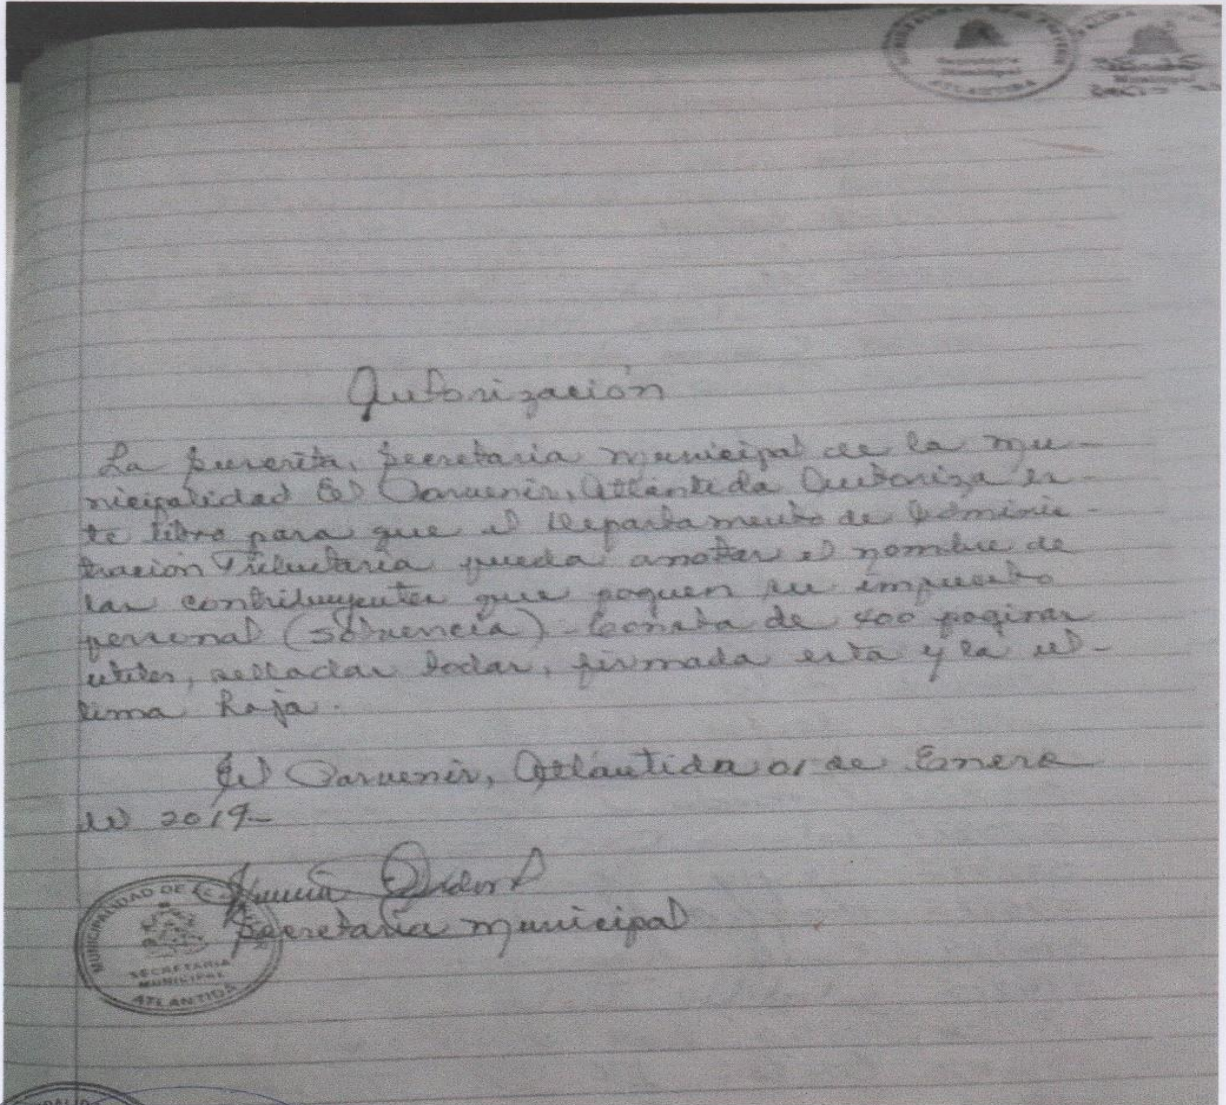 ATLANTIDA
Autorización
La suscrita, secretaria municipal de la mu-
nicipalidad El Porvenir, Atlántida Autoriza es-
te libro para que el Departamento de Adminis-
tracion Tributaria pueda anotar el nombre de
los contribuyentes que paguen su impuesto
personal (solvencia) - Consta de 400 paginas
utiles, selladas todas, firmada esta y la ul-
tima hoja.
El Porvenir, Atlántida 01 de Enero
del 2019-
Secretaria municipal
MUNICIPALIDAD DE EL
SECRETARIA
MUNICIPAL
ATLANTIDA